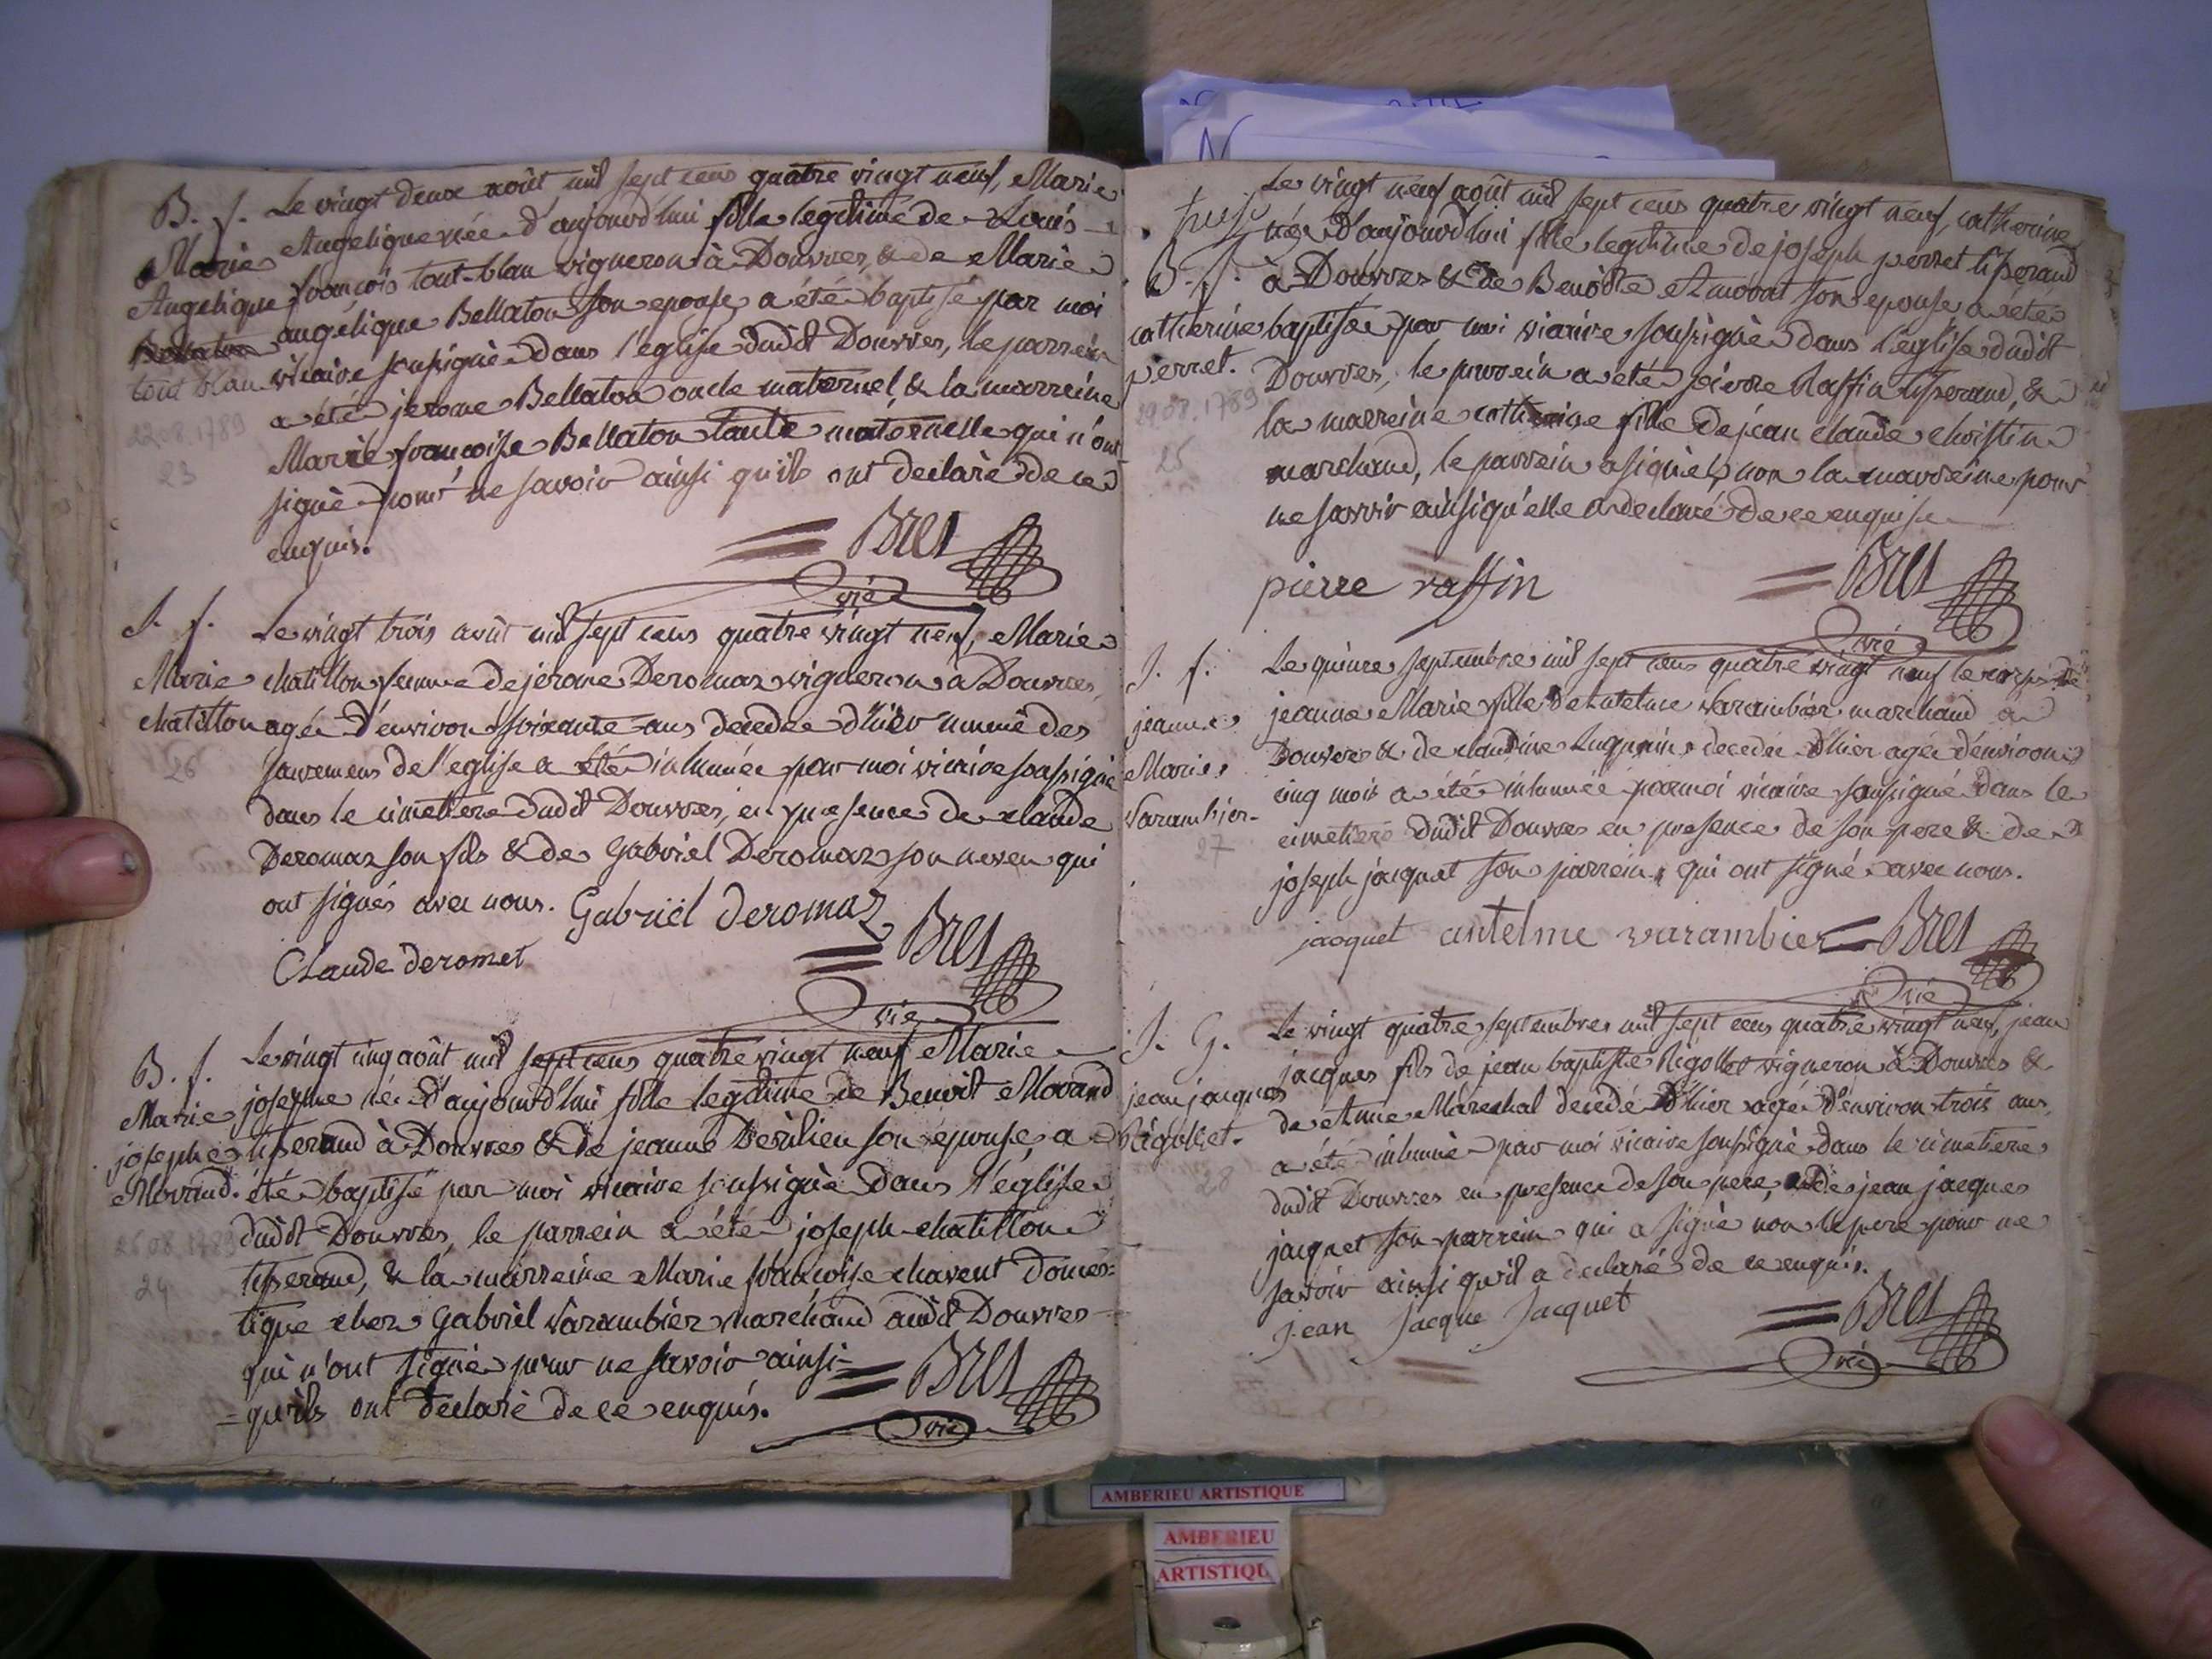 B. f. Le vingt deux août mil sept cens quatre vingt neuf, Marie
Marie Angelique née d'aujourd'hui fille legitime de Louis
Angelique françois tout-blan vigneron à Douvres, & de Marie
Bellaton angélique Bellaton son epouse a été baptisé par moi
tout blan vicaire soussigné dans l'eglise dudit Douvres, le parrein
22.08.1789 a été jerome Bellaton oncle maternel & la marreine
23 Marie françoise Bellaton tante maternelle qui n'ont
signé pour ne savoir ainsi qu'ils ont declaré de ce
enquis.
= Bret
vic
S. f. Le vingt trois août mil sept cens quatre vingt neuf, Marie
Marie chatillon femme de jerome Deromaz vigneron à Douvres,
chatillon agée d'environ soixante ans decedée d'hier munie des
26 sacremens de l'eglise a été inhumée par moi vicaire soussigné
dans le cimetiere dudit Douvres, en presence de claude
Deromaz son fils & de Gabriel Deromaz son neveu qui
ont signés avec nous. Gabriel deromaz
Claude deromet = Bret
vic
B. f. Le vingt cinq août mil sept cens quatre vingt neuf Marie
Marie josephe née d'aujourd'hui fille legitime de Benoit Morand
josephe tisserand à Douvres & de jeanne son epouse, a
Morand. été baptisé par moi vicaire soussigné dans l'église
dudit Douvres, le parrein a été joseph chatillon
24 tisserand, & la marreine Marie françoise chavent domes=
tique chez Gabriel Varambier marchand audit Douvres
qui n'ont signé pour ne savoir ainsi
= qu'ils ont declaré de ce enquis. = Bret
vic
Le vingt neuf août mil sept cens quatre vingt neuf, catherine
née d'aujourd'hui fille legitime de joseph perret tisserand
B. f. à Douvres & de Benoite son epouse a été
catherine baptisée par moi vicaire soussigné dans l'église dudit
perret. Douvres, le parrein a été pierre Raffin tisserand, &
29.08.1789 la marreine catherine fille de jean claude
25 marchand, le parrein a signé, non la marreine pour
ne savoir ainsi qu'elle a declaré de ce enquise
pierre raffin = Bret
vic
S. f. Le quinze septembre mil sept cens quatre vingt neuf le corps de
jeanne jeanne Marie fille d'Antelme Varambier marchand a
Marie Douvres & de claudine decedée d'hier agée d'environ
Varambier cinq mois a été inhumée par moi vicaire soussigné dans le
27 cimetiere dudit Douvres en presence de son pere & de
joseph jacquet son parrein, qui ont signé avec nous.
jacquet antelme varambier = Bret
vic
S. G. Le vingt quatre septembre mil sept cens quatre vingt neuf, jean
jean jacques jacques fils de jean baptiste Rigollet vigneron à Douvres &
Rigollet. de Anne Marechal decedé d'hier agé d'environ trois ans,
a été inhumé par moi vicaire soussigné dans le cimetiere
28 dudit Douvres en presence de son pere, & de jean jacques
jacquet son parrein qui a signé non le pere pour ne
savoir ainsi qu'il a declaré de ce enquis.
jean jacque jacquet = Bret
vic
AMBERIEU ARTISTIQUE
AMBERIEU
ARTISTIQU